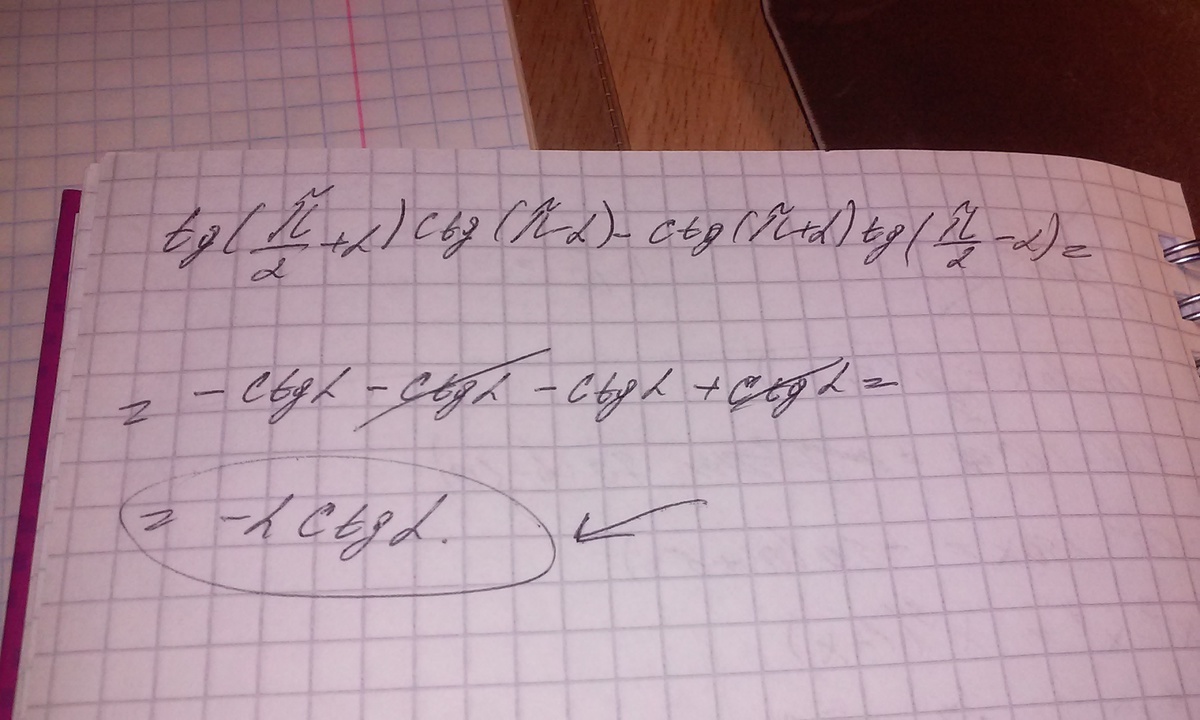 tg(π/2+α)ctg(π-α)-ctg(π+α)tg(π/2-α)=
= -ctgα-ctgα-ctgα+ctgα=
= -2ctgα.